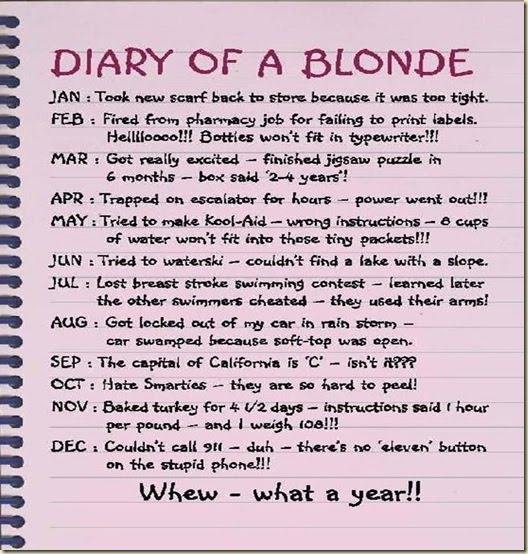 DIARY OF A BLONDE
JAN : Took new scarf back to store because it was too tight.
FEB : Fired from pharmacy job for failing to print labels.
Helllloooo!!! Bottles won't fit in typewriter!!!
MAR : Got really excited – finished jigsaw puzzle in
6 months – box said '2-4 years'!
APR : Trapped on escalator for hours – power went out!!!
MAY : Tried to make Kool-Aid – wrong instructions – 8 cups
of water won't fit into those tiny packets!!!
JUN : Tried to waterski – couldn't find a lake with a slope.
JUL : Lost breast stroke swimming contest – learned later
the other swimmers cheated – they used their arms!
AUG : Got locked out of my car in rain storm –
car swamped because soft-top was open.
SEP : The capital of California is 'C' – isn't it???
OCT : Hate Smarties – they are so hard to peel!
NOV : Baked turkey for 4 1/2 days – instructions said 1 hour
per pound – and I weigh 108!!!
DEC : Couldn't call 911 – duh – there's no 'eleven' button
on the stupid phone!!!
Whew - what a year!!